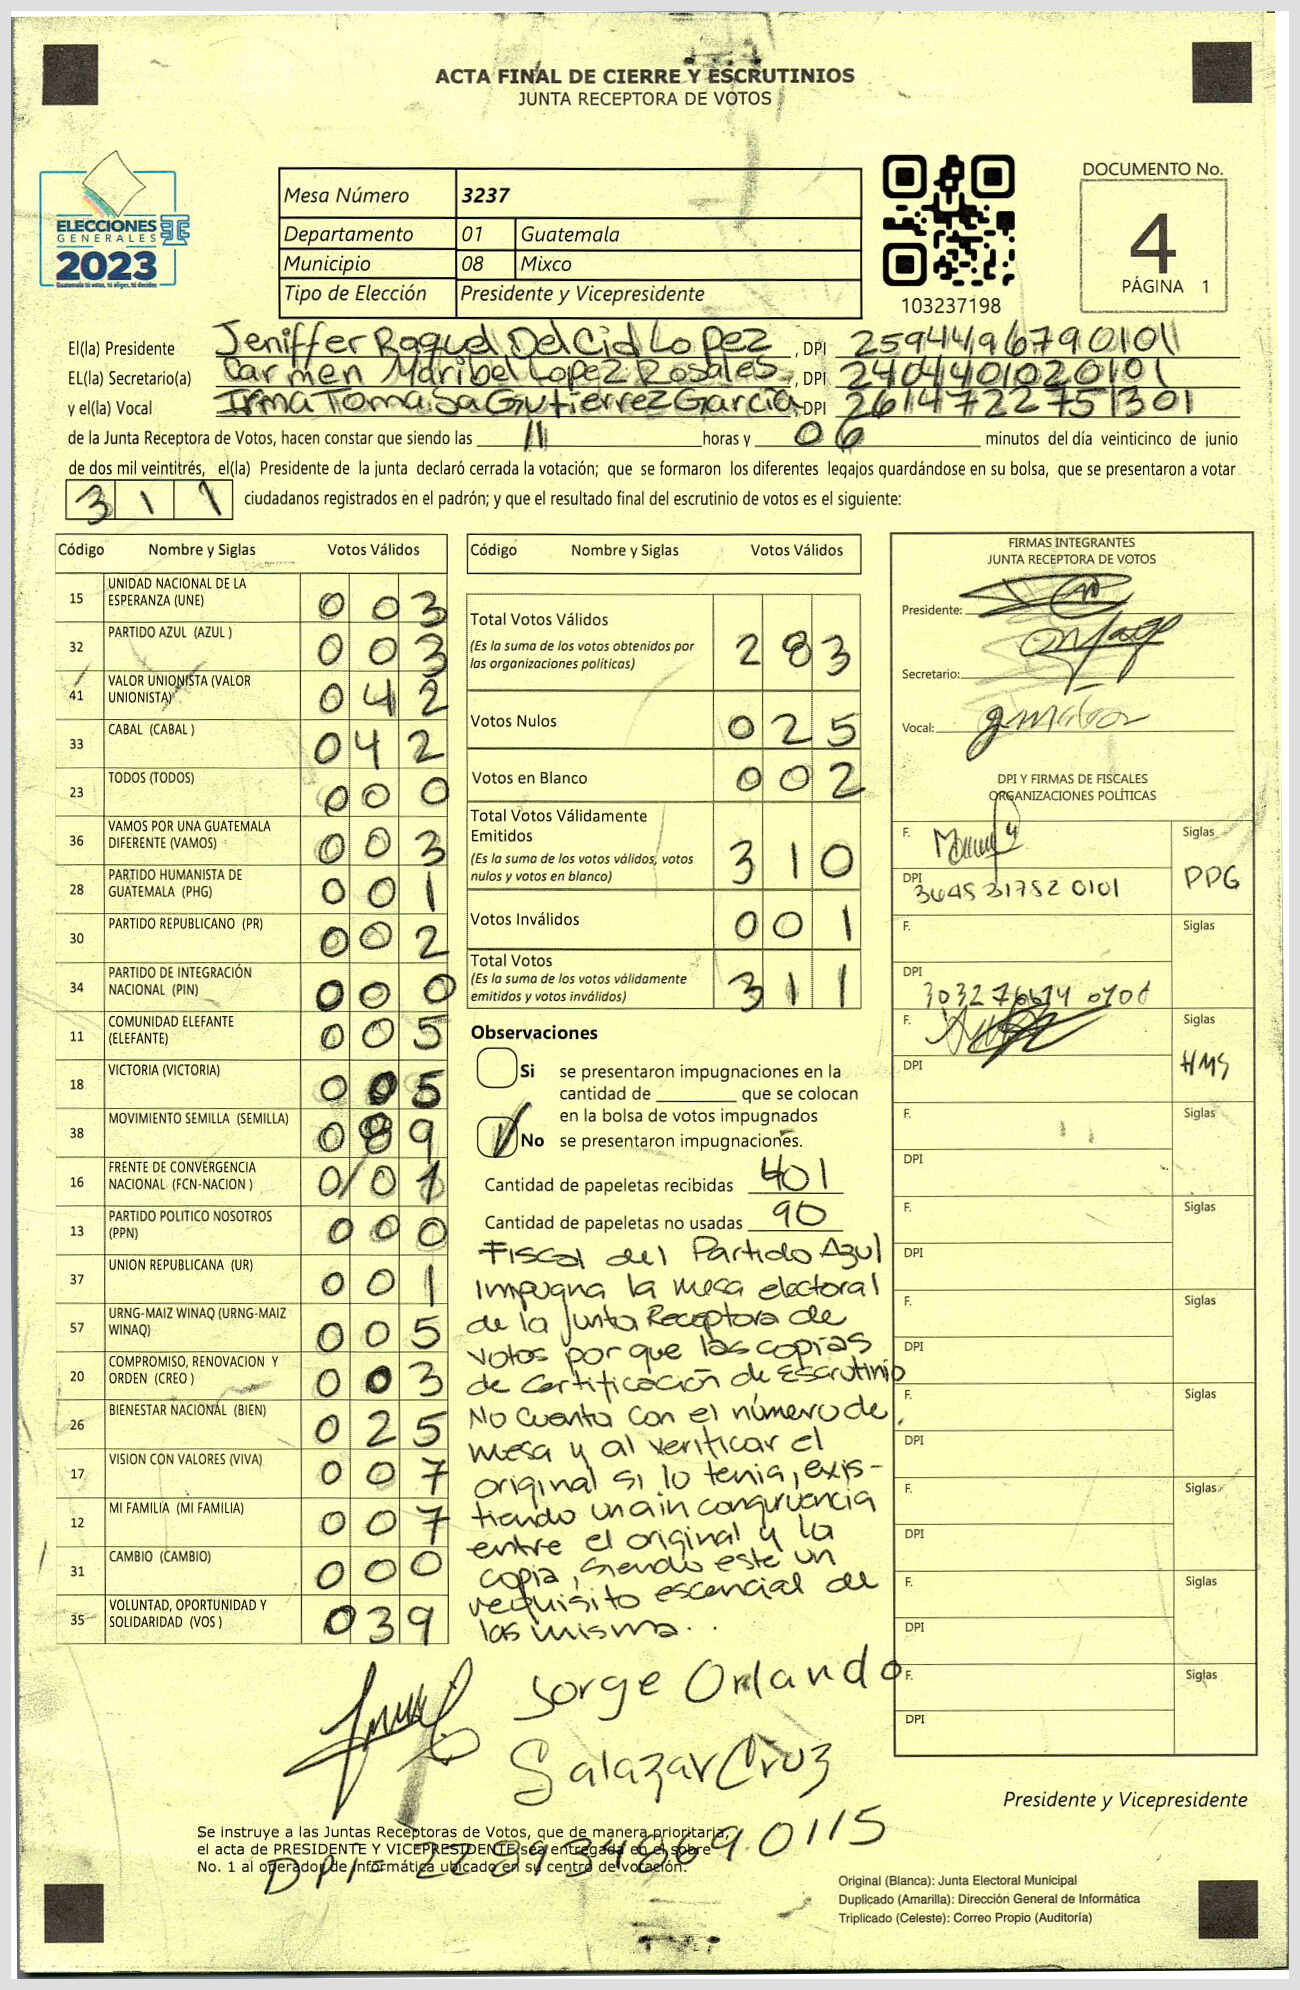 ACTA FINAL DE CIERRE Y ESCRUTINIOS
JUNTA RECEPTORA DE VOTOS
ELECCIONES
GENERALES
2023
Guatemala tú votas, tú eliges, tú decides
Mesa Número 3237
Departamento 01 Guatemala
Municipio 08 Mixco
Tipo de Elección Presidente y Vicepresidente
103237198
DOCUMENTO No.
4
PÁGINA 1
El(la) Presidente Jeniffer Raquel Del Cid Lopez, DPI 2594496790101
EL(la) Secretario(a) Carmen Maribel Lopez Rosales, DPI 2404401020101
y el(la) Vocal Irma Tomasa Gutierrez García, DPI 2614722751301
de la Junta Receptora de Votos, hacen constar que siendo las 11 horas y 06 minutos del día veinticinco de junio
de dos mil veintitrés, el(la) Presidente de la junta declaró cerrada la votación; que se formaron los diferentes legajos guardándose en su bolsa, que se presentaron a votar
311 ciudadanos registrados en el padrón; y que el resultado final del escrutinio de votos es el siguiente:
Código Nombre y Siglas Votos Válidos
15 UNIDAD NACIONAL DE LA ESPERANZA (UNE) 003
32 PARTIDO AZUL (AZUL ) 003
41 VALOR UNIONISTA (VALOR UNIONISTA) 042
33 CABAL (CABAL ) 042
23 TODOS (TODOS) 000
36 VAMOS POR UNA GUATEMALA DIFERENTE (VAMOS) 003
28 PARTIDO HUMANISTA DE GUATEMALA (PHG) 001
30 PARTIDO REPUBLICANO (PR) 002
34 PARTIDO DE INTEGRACIÓN NACIONAL (PIN) 000
11 COMUNIDAD ELEFANTE (ELEFANTE) 005
18 VICTORIA (VICTORIA) 005
38 MOVIMIENTO SEMILLA (SEMILLA) 089
16 FRENTE DE CONVERGENCIA NACIONAL (FCN-NACION ) 001
13 PARTIDO POLITICO NOSOTROS (PPN) 000
37 UNION REPUBLICANA (UR) 001
57 URNG-MAIZ WINAQ (URNG-MAIZ WINAQ) 005
20 COMPROMISO, RENOVACION Y ORDEN (CREO ) 003
26 BIENESTAR NACIONAL (BIEN) 025
17 VISION CON VALORES (VIVA) 007
12 MI FAMILIA (MI FAMILIA) 007
31 CAMBIO (CAMBIO) 000
35 VOLUNTAD, OPORTUNIDAD Y SOLIDARIDAD (VOS ) 039
Código Nombre y Siglas Votos Válidos
Total Votos Válidos 283
(Es la suma de los votos obtenidos por las organizaciones políticas)
Votos Nulos 025
Votos en Blanco 002
Total Votos Válidamente Emitidos 310
(Es la suma de los votos válidos, votos nulos y votos en blanco)
Votos Inválidos 001
Total Votos 311
(Es la suma de los votos válidamente emitidos y votos inválidos)
Observaciones
Si se presentaron impugnaciones en la
cantidad de ________ que se colocan
en la bolsa de votos impugnados
No se presentaron impugnaciones.
Cantidad de papeletas recibidas 401
Cantidad de papeletas no usadas 90
Fiscal del Partido Azul
impugna la mesa electoral
de la Junta Receptora de
votos por que las copias
de Certificación de Escrutinio
No cuenta con el número de
mesa y al verificar el
original si lo tenia, exis-
tiendo una incongruencia
entre el original y la
copia, siendo este un
requisito escencial de
las misma..
Jorge Orlando
Salazar Cruz
FIRMAS INTEGRANTES
JUNTA RECEPTORA DE VOTOS
Presidente:
Secretario:
Vocal:
DPI Y FIRMAS DE FISCALES
ORGANIZACIONES POLÍTICAS
F. Siglas
DPI 3645317520101 PPG
F. Siglas
DPI
F. Siglas
DPI HMS
F. Siglas
DPI
F. Siglas
DPI
F. Siglas
DPI
F. Siglas
DPI
F. Siglas
DPI
F. Siglas
DPI
F. Siglas
DPI
Presidente y Vicepresidente
Se instruye a las Juntas Receptoras de Votos, que de manera prioritaria,
el acta de PRESIDENTE Y VICEPRESIDENTE sea entregada en el sobre
No. 1 al operador de informática ubicado en su centro de votación.
DPI
Original (Blanca): Junta Electoral Municipal
Duplicado (Amarilla): Dirección General de Informática
Triplicado (Celeste): Correo Propio (Auditoría)